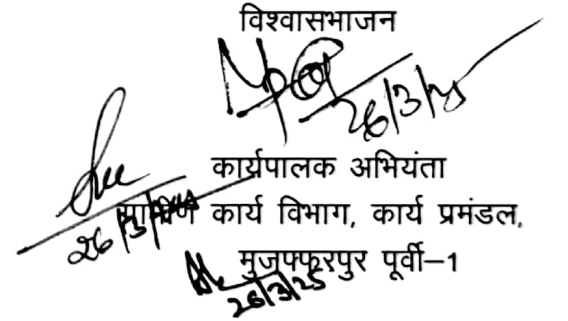 विश्वासभाजन
26/3/25
कार्यपालक अभियंता
26/3/
ग्रामीण कार्य विभाग, कार्य प्रमंडल,
मुजफ्फरपुर पूर्वी–1
26/3/25